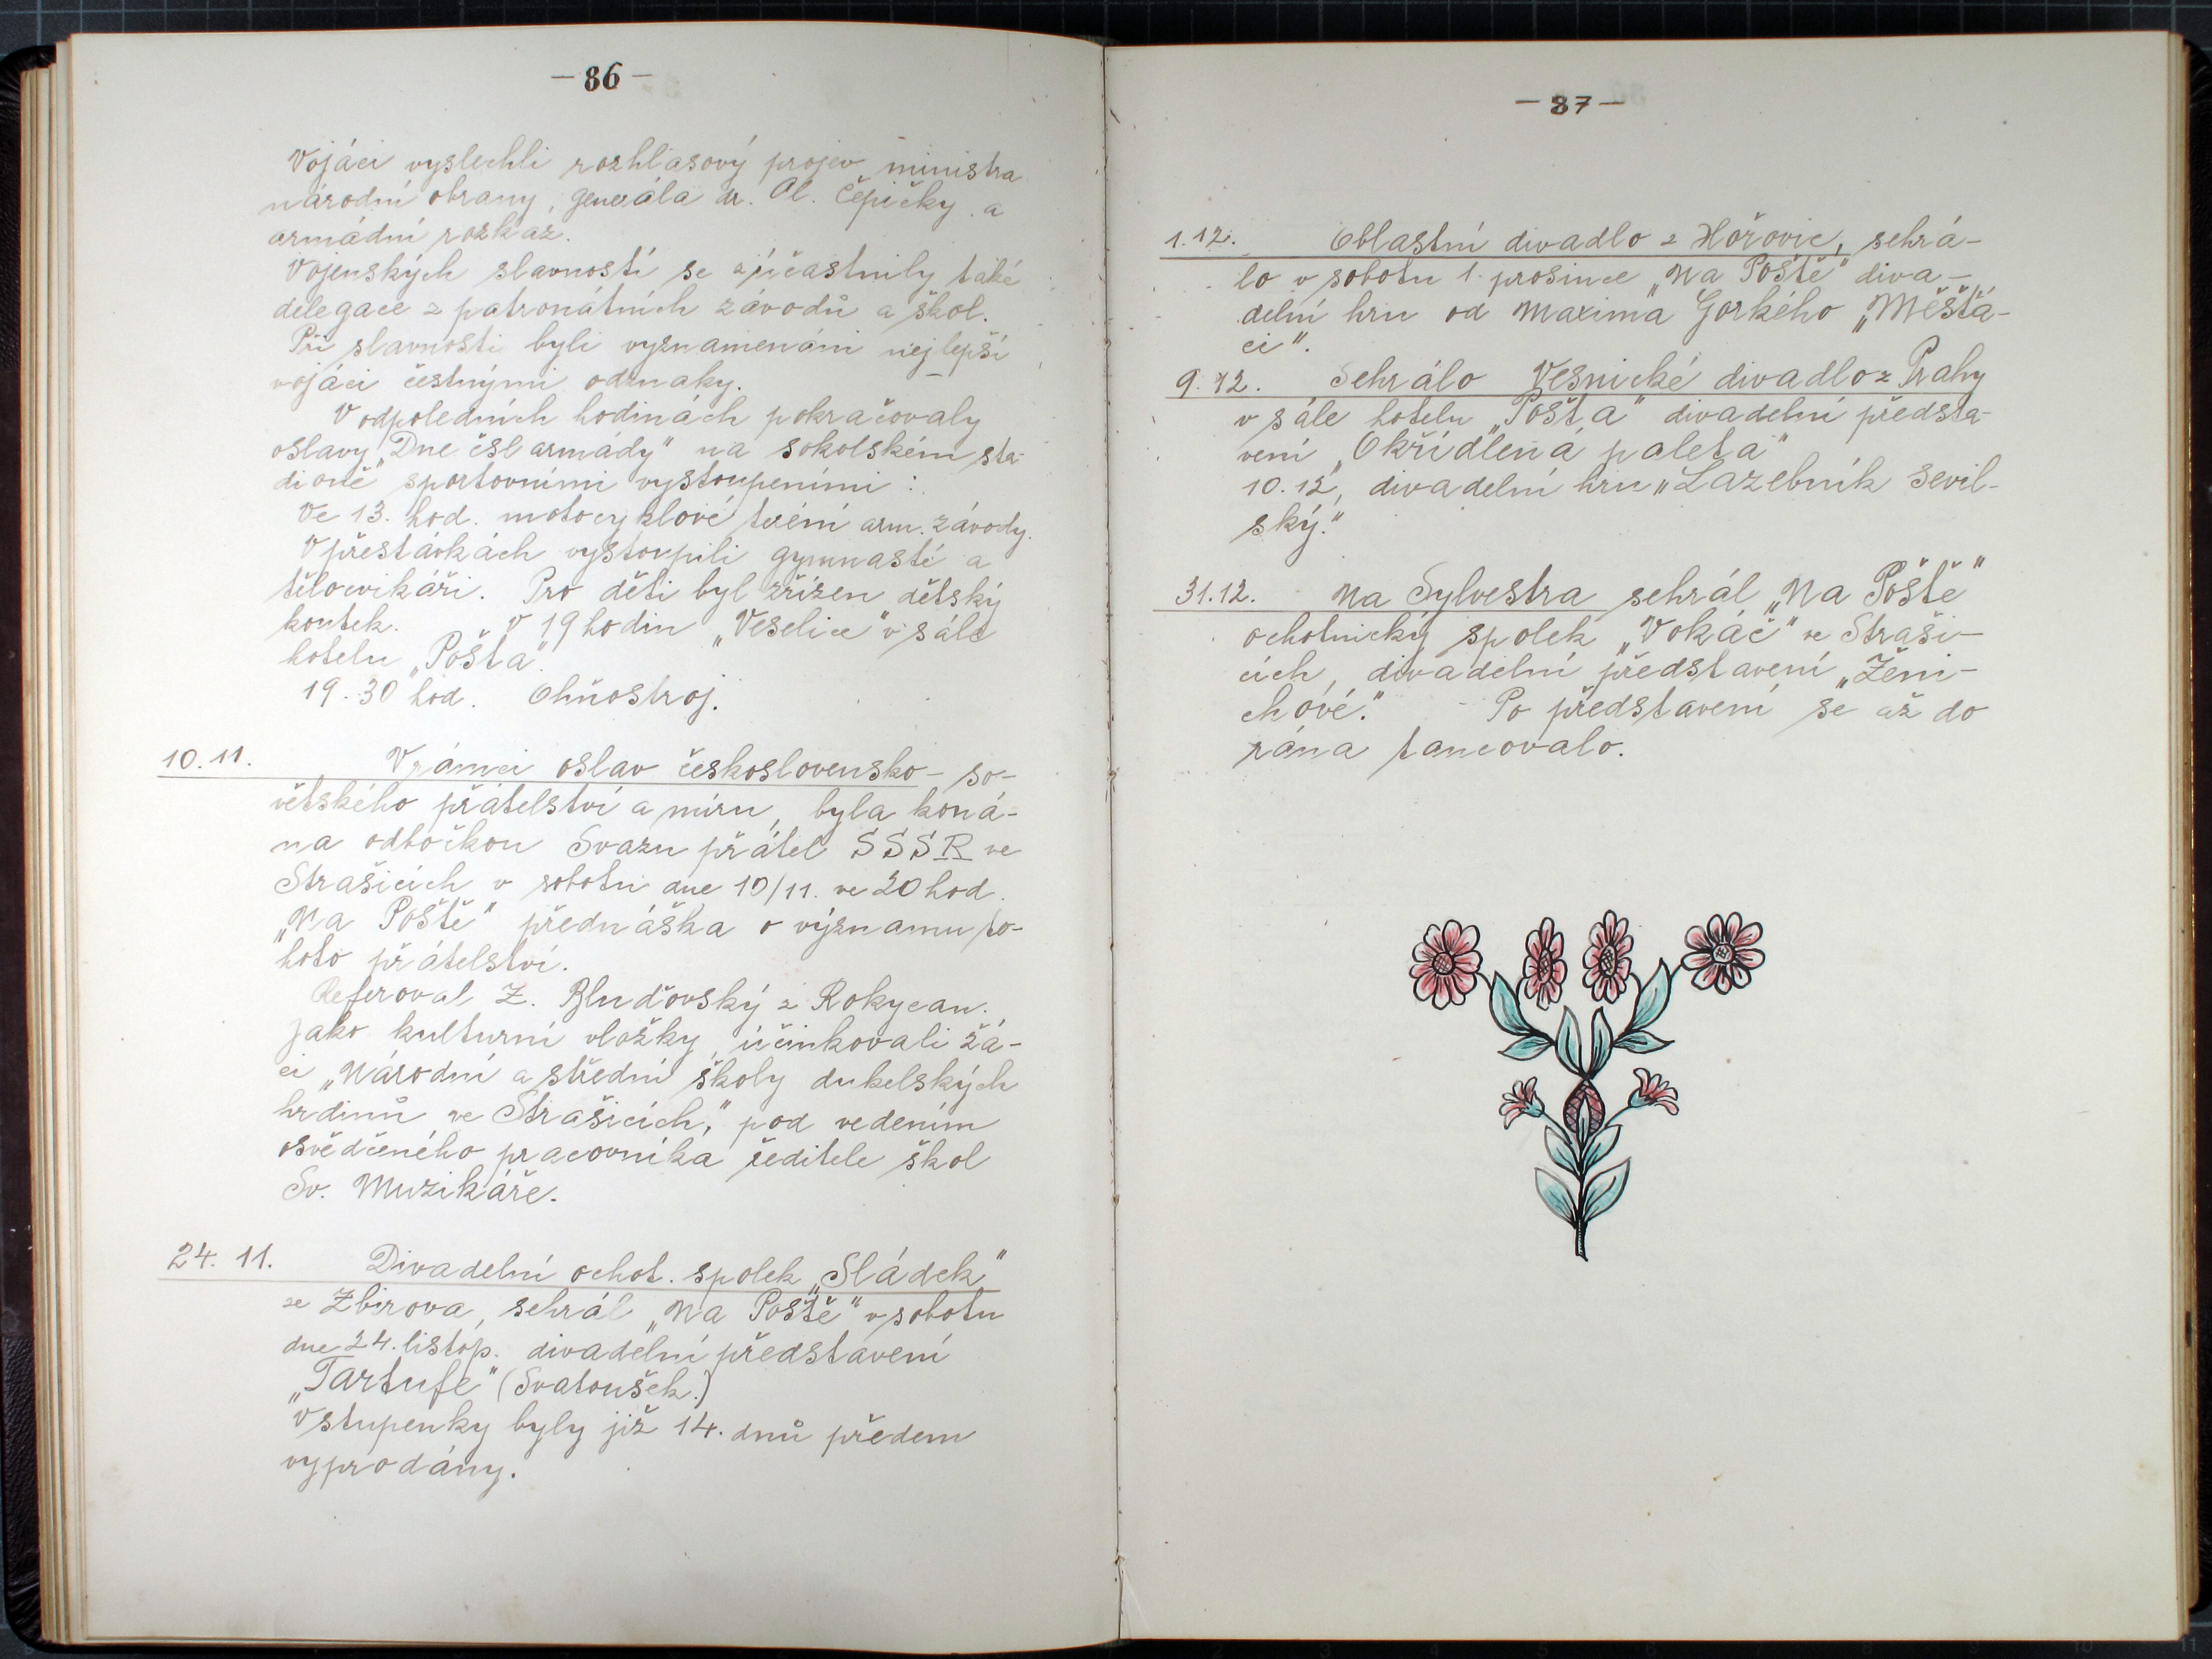 – 86 –
Vojáci vyslechli rozhlasový projev ministra
národní obrany, generála dr. Al. Čepičky a
armádní rozkaz.
Vojenských slavností se zúčastnily také
delegace z patronátních závodů a škol.
Při slavnosti byli vyznamenáni nejlepší
vojáci čestnými odznaky.
V odpoledních hodinách pokračovaly
oslavy „Dne čsl armády" na sokolském sta-
dioně sportovními vystoupeními :
Ve 13. hod. motocyklové terénní arm. závody.
V přestávkách vystoupili gymnasté a
tělocvikáři. Pro děti byl zřízen dětský
koutek. V 19 hodin „Veselice" v sále
hotelu „Pošta".
19.30 hod. Ohňostroj.
10. 11. V rámci oslav československo – so-
větského přátelství a míru, byla koná-
na odbočkou Svazu přátel SSSR ve
Strašicích v sobotu dne 10/11. ve 20 hod.
„Na Poště" přednáška o významu to-
hoto přátelství.
Referoval Z. Bluďovský z Rokycan.
Jako kulturní vložky, účinkovali žá-
ci „Národní a střední školy dukelských
hrdinů ve Strašicích," pod vedením
osvědčeného pracovníka ředitele škol
Sv. Muzikáře.
24. 11. Divadelní ochot. spolek „Sládek"
ze Zbirova, sehrál „Na Poště" v sobotu
dne 24. listop. divadelní představení
„Tartufe" (Svatoušek.)
Vstupenky byly již 14. dnů předem
vyprodány.
– 87 –
1. 12. Oblastní divadlo z Hořovic, sehrá-
lo v sobotu 1. prosince „Na Poště" diva-
delní hru od Maxima Gorkého „Měšťá-
ci".
9. 12. Sehrálo Vesnické divadlo z Prahy
v sále hotelu „Pošta" divadelní předsta-
vení „Okřídlená paleta"
10. 12, divadelní hru „Lazebník sevil-
ský."
31. 12. Na Sylvestra sehrál „Na Poště"
ochotnický spolek „Vokáč" ve Straši-
cích, divadelní představení „Ženi-
chové." Po představení se až do
rána tancovalo.